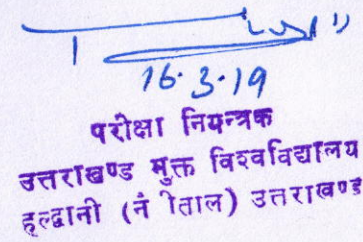 16.3.19
परीक्षा नियन्त्रक
उत्तराखण्ड मुक्त विश्वविद्यालय
हल्द्वानी (नैीताल) उत्तराखण्ड